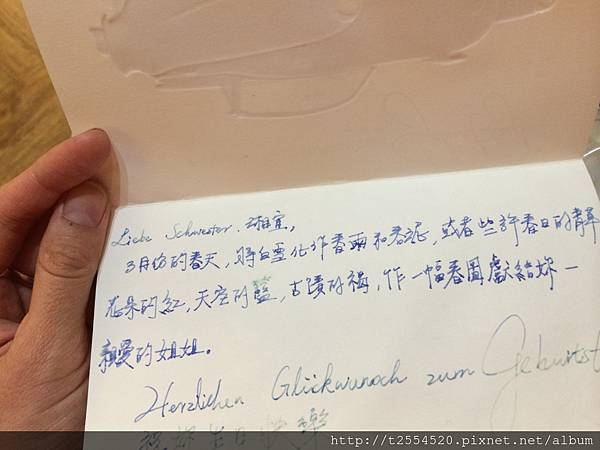 Liebe Schwester. 湘宜。
3月份的春天，將白雪化作春雨和春泥，或者些許春日的靜
花朵的紅，天空的藍，古蹟的褐，作一幅春圖獻給妳一
親愛的姐姐。
Herzlichen Glückwunsch zum Geburtst
祝妳生日快樂
http://t2554520.pixnet.net/album